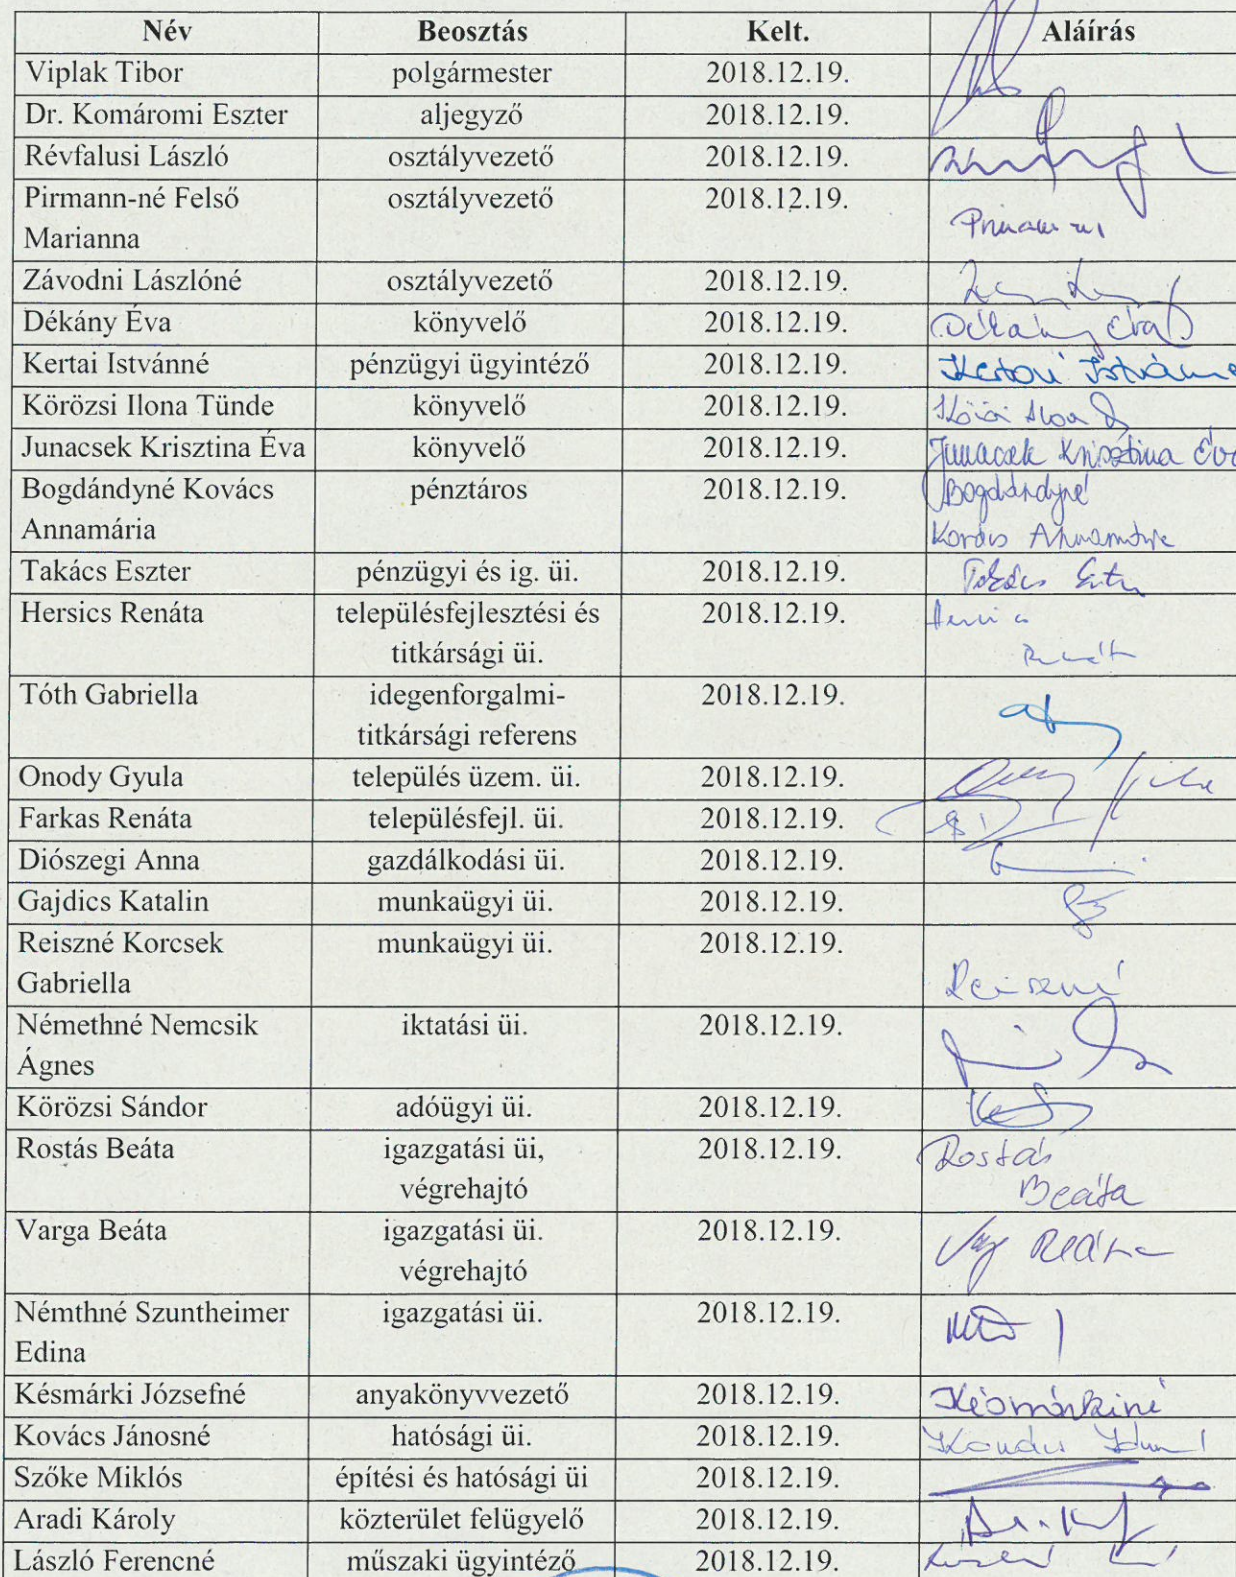 Név Beosztás Kelt. Aláírás
Viplak Tibor polgármester 2018.12.19.
Dr. Komáromi Eszter aljegyző 2018.12.19.
Révfalusi László osztályvezető 2018.12.19.
Pirmann-né Felső osztályvezető 2018.12.19.
Marianna
Závodni Lászlóné osztályvezető 2018.12.19.
Dékány Éva könyvelő 2018.12.19. Dékány Éva
Kertai Istvánné pénzügyi ügyintéző 2018.12.19. Kertai Istvánné
Körözsi Ilona Tünde könyvelő 2018.12.19.
Junacsek Krisztina Éva könyvelő 2018.12.19. Junacsek Krisztina Éva
Bogdándyné Kovács pénztáros 2018.12.19. Bogdándyné
Annamária Kovács Annamária
Takács Eszter pénzügyi és ig. üi. 2018.12.19. Takács Eszter
Hersics Renáta településfejlesztési és 2018.12.19.
titkársági üi.
Tóth Gabriella idegenforgalmi- 2018.12.19.
titkársági referens
Onody Gyula település üzem. üi. 2018.12.19.
Farkas Renáta településfejl. üi. 2018.12.19.
Diószegi Anna gazdálkodási üi. 2018.12.19.
Gajdics Katalin munkaügyi üi. 2018.12.19.
Reiszné Korcsek munkaügyi üi. 2018.12.19.
Gabriella Reiszné
Némethné Nemcsik iktatási üi. 2018.12.19.
Ágnes
Körözsi Sándor adóügyi üi. 2018.12.19.
Rostás Beáta igazgatási üi, 2018.12.19. Rostás
végrehajtó Beáta
Varga Beáta igazgatási üi. 2018.12.19. Beáta
végrehajtó
Némthné Szuntheimer igazgatási üi. 2018.12.19.
Edina
Késmárki Józsefné anyakönyvvezető 2018.12.19. Késmárkiné
Kovács Jánosné hatósági üi. 2018.12.19. Kovács
Szőke Miklós építési és hatósági üi 2018.12.19.
Aradi Károly közterület felügyelő 2018.12.19.
László Ferencné műszaki ügyintéző 2018.12.19.